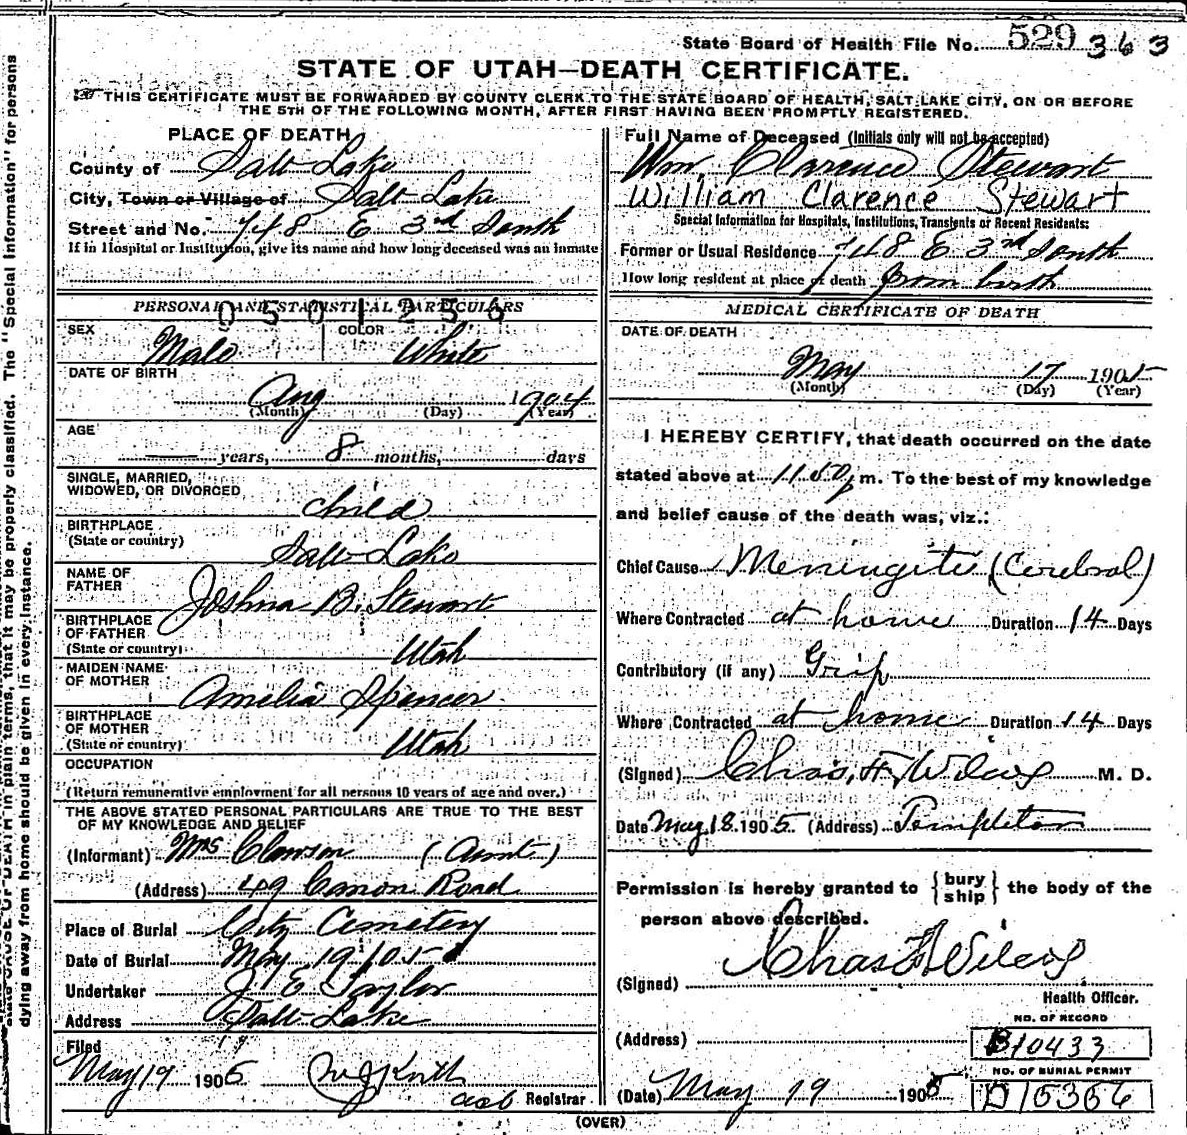 State Board of Health File No. 529 363
STATE OF UTAH—DEATH CERTIFICATE.
THIS CERTIFICATE MUST BE FORWARDED BY COUNTY CLERK TO THE STATE BOARD OF HEALTH, SALT LAKE CITY, ON OR BEFORE
THE 5TH OF THE FOLLOWING MONTH, AFTER FIRST HAVING BEEN PROMPTLY REGISTERED.
PLACE OF DEATH
County of Salt Lake
City, Town or Village of Salt Lake
Street and No. 748 E 3rd South
If in Hospital or Institution, give its name and how long deceased was an inmate
PERSONAL AND STATISTICAL PARTICULARS
0501256
SEX Male COLOR White
DATE OF BIRTH
Aug 1904
(Month) (Day) (Year)
AGE
— years, 8 months, days
SINGLE, MARRIED,
WIDOWED, OR DIVORCED child
BIRTHPLACE
(State or country) Salt Lake
NAME OF
FATHER Joshua B. Stewart
BIRTHPLACE
OF FATHER
(State or country) Utah
MAIDEN NAME
OF MOTHER Amelia Spencer
BIRTHPLACE
OF MOTHER
(State or country) Utah
OCCUPATION
(Return remunerative employment for all persons 10 years of age and over.)
THE ABOVE STATED PERSONAL PARTICULARS ARE TRUE TO THE BEST
OF MY KNOWLEDGE AND BELIEF
(Informant) Mrs Clawson (Aunt)
(Address) 49 Canon Road
Place of Burial City Cemetery
Date of Burial May 19 05
Undertaker J E Taylor
Address Salt Lake
Filed
May 19 1905
Registrar
Full Name of Deceased (Initials only will not be accepted)
Wm. Clarence Stewart
William Clarence Stewart
Special Information for Hospitals, Institutions, Transients or Recent Residents:
Former or Usual Residence 748 E 3rd South
How long resident at place of death from birth
MEDICAL CERTIFICATE OF DEATH
DATE OF DEATH
May 17 1905
(Month) (Day) (Year)
I HEREBY CERTIFY, that death occurred on the date
stated above at 11.50 p m. To the best of my knowledge
and belief cause of the death was, viz.:
Chief Cause Meningitis (Cerebral)
Where Contracted at home Duration 14 Days
Contributory (if any) Grip
Where Contracted at home Duration 14 Days
(Signed) Chas. F. Wilcox M. D.
Date May 18 1905 (Address) Templeton
Permission is hereby granted to {bury ship} the body of the
person above described.
(Signed) Chas F Wilcox
Health Officer.
(Address)
NO. OF RECORD
B10433
NO. OF BURIAL PERMIT
D15356
(Date) May 19 1905
(OVER)
state CAUSE OF DEATH in plain terms, that it may be properly classified. The "Special Information" for persons
dying away from home should be given in every instance.